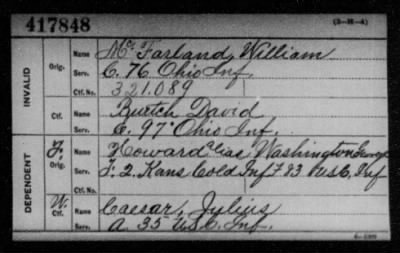 417848
(3-M-4)
INVALID
Orig.
Name Mc Farland, William
Serv. C. 76 Ohio Inf.
Ctf. No. 321.089
Ctf.
Name Burtch David
Serv. C. 97 Ohio Inf.
DEPENDENT
F.
Orig.
Name Howard alias Washington George
Serv. F. 2. Kans Cold Inf F 83 U.S.C. Inf
Ctf. No.
W.
Ctf.
Name Caesar, Julius
Serv. A 35 U.S.C. Inf.